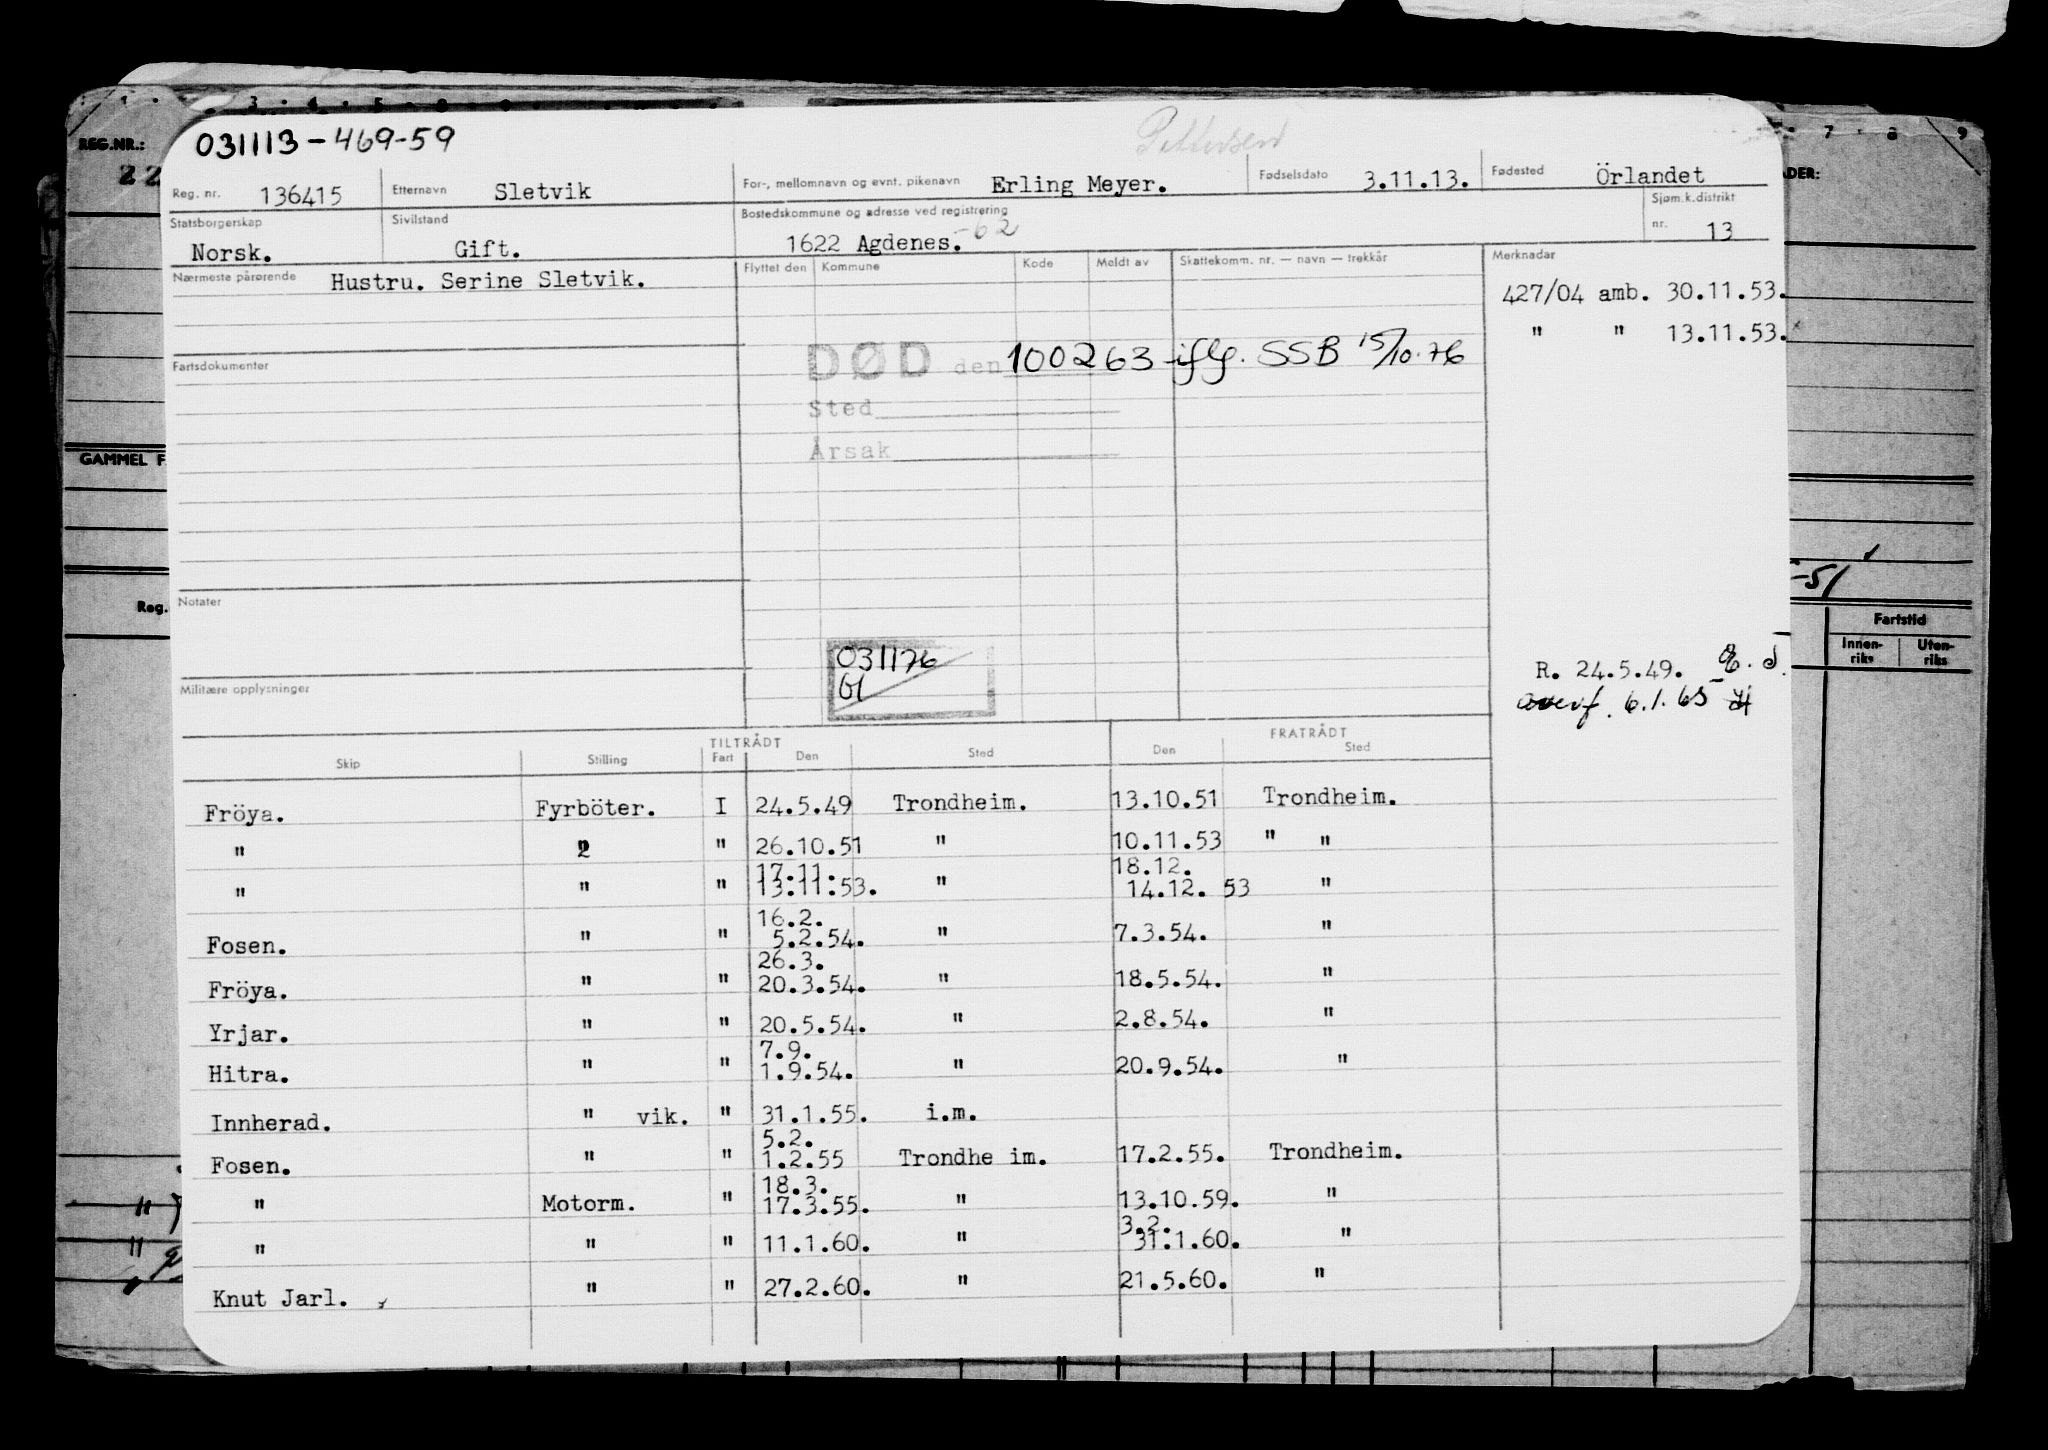 REG.NR.:
22
7 8 9
031113-469-59
Pettersen
Reg. nr. 136415 Etternavn Sletvik For-, mellomnavn og evnt. pikenavn Erling Meyer. Fødselsdato 3.11.13. Fødested Örlandet
Statsborgerskap Norsk. Sivilstand Gift. Bostedskommune og adresse ved registrering 1622 Agdenes. -62 Sjøm.k.distrikt nr. 13
Nærmeste pårørende Hustru. Serine Sletvik. Flyttet den Kommune Kode Meldt av Skattekomm. nr. — navn — trekkår Merknader
427/04 amb. 30.11.53.
" " 13.11.53.
DØD den 100263 iflg. SSB 15/10.76
Fartsdokumenter
Sted
Årsak
GAMMEL F
-51
Notater
Reg.
Fartstid
Innen-riks Uten-riks
031176
Gl
R. 24.5.49. E. J.
Overf. 6.1.65
Militære opplysninger
TILTRÅDT FRATRÅDT
Skip Stilling Fart Den Sted Den Sted
Fröya. Fyrböter. I 24.5.49 Trondheim. 13.10.51 Trondheim.
" 2 " 26.10.51 " 10.11.53 " "
17.11. 18.12.
" " " 13.11.53. " 14.12. 53 "
16.2.
Fosen. " " 5.2.54. " 7.3.54. "
26.3.
Fröya. " " 20.3.54. " 18.5.54. "
Yrjar. " " 20.5.54. " 2.8.54. "
7.9.
Hitra. " " 1.9.54. " 20.9.54. "
Innherad. " vik. " 31.1.55. i.m.
5.2.
Fosen. " " 1.2.55 Trondhe im. 17.2.55. Trondheim.
18.3.
" Motorm. " 17.3.55. " 13.10.59. "
3.2.
" " " 11.1.60. " 31.1.60. "
Knut Jarl. " " 27.2.60. " 21.5.60. "